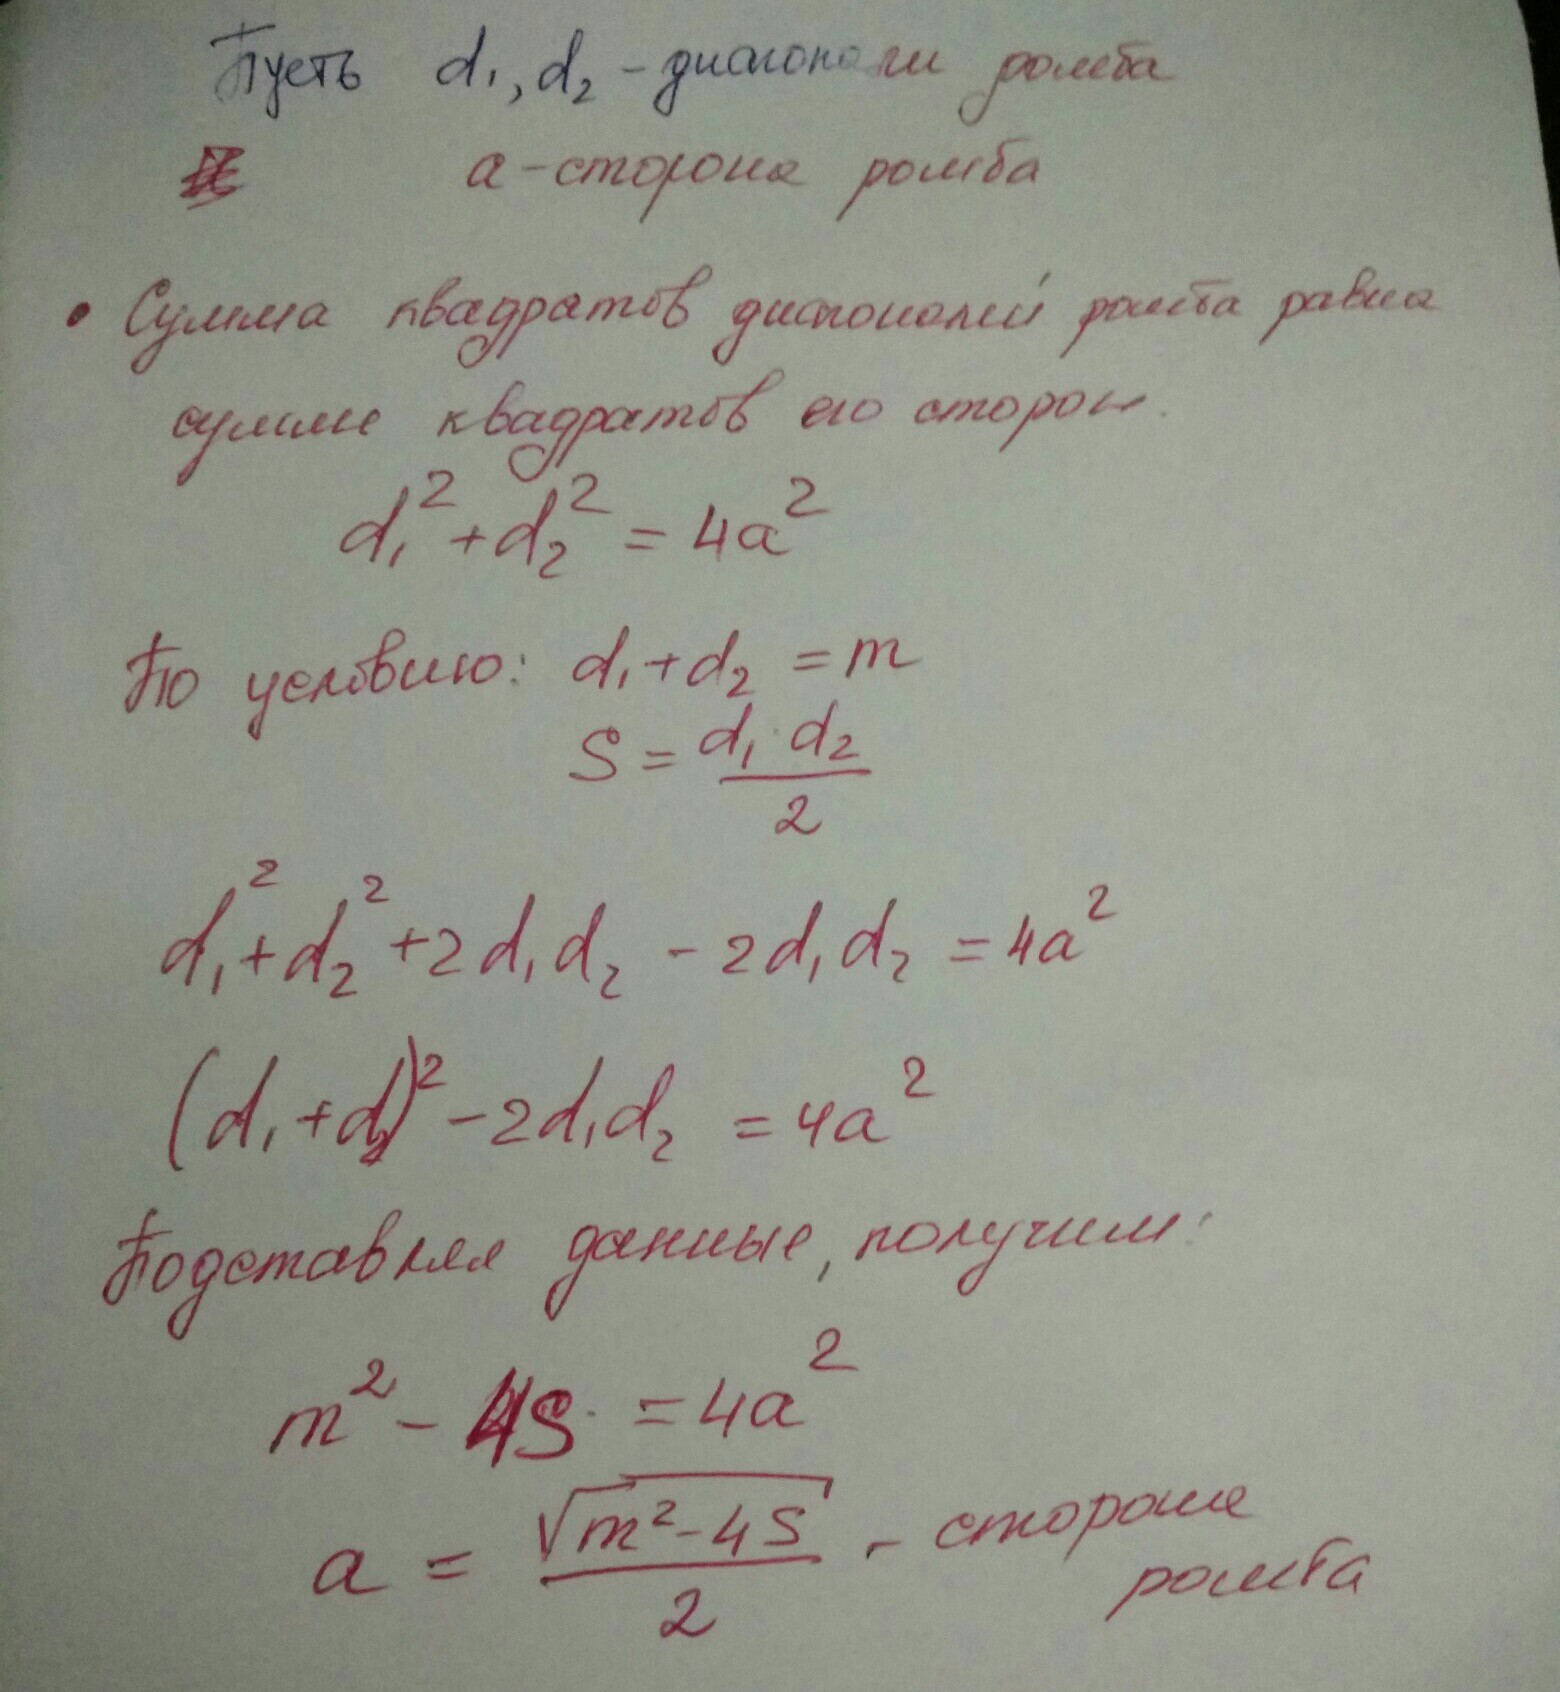 Пусть d₁, d₂ - диагонали ромба
a - сторона ромба
• Сумма квадратов диагоналей ромба равна
сумме квадратов его сторон.
d₁² + d₂² = 4a²
По условию: d₁ + d₂ = m
S = d₁ · d₂ / 2
d₁² + d₂² + 2d₁d₂ - 2d₁d₂ = 4a²
(d₁ + d₂)² - 2d₁d₂ = 4a²
Подставляя данные, получим:
m² - 4S = 4a²
a = √(m² - 4S) / 2 - сторона
ромба